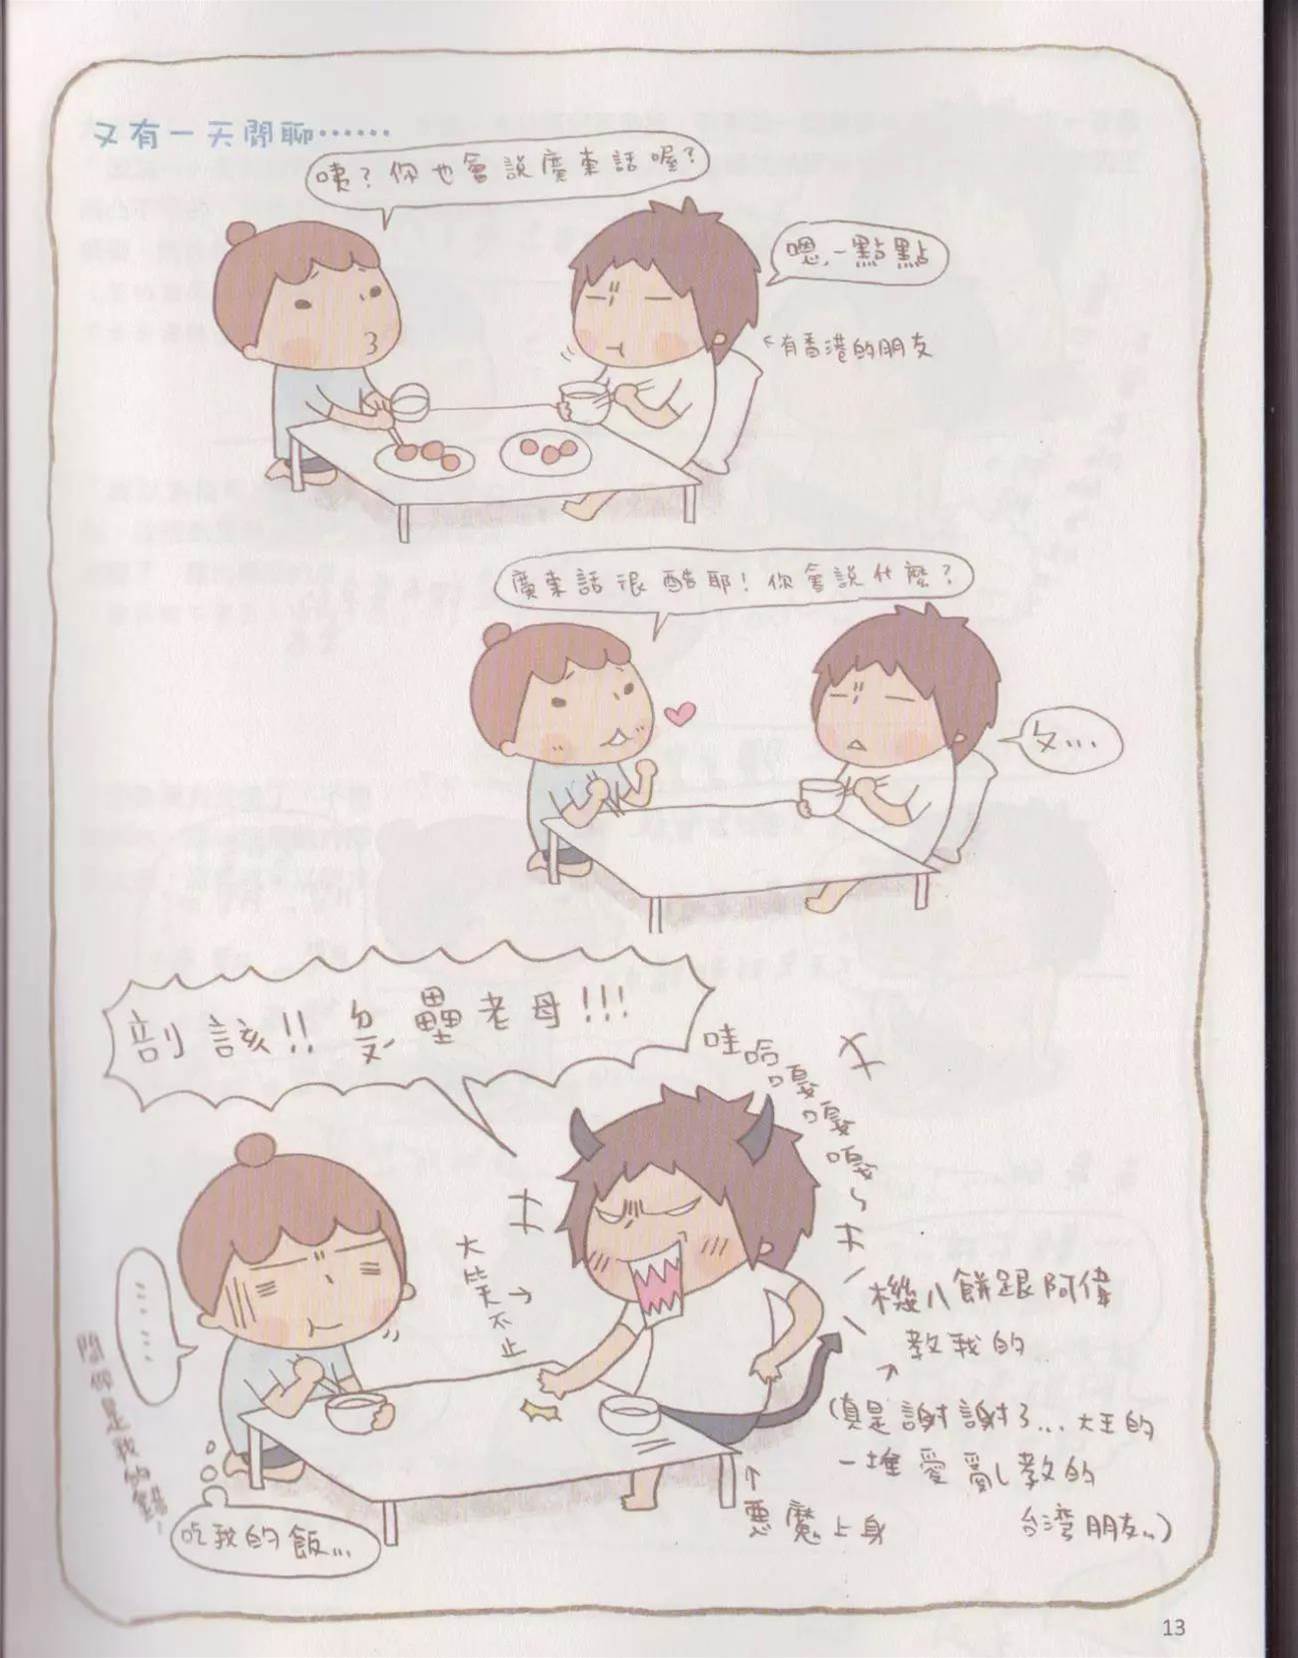 又有一天閒聊……
咦？你也會說廣東話喔？
嗯，一點點
←有香港的朋友
廣東話很酷耶！你會說什麼？
ㄆ…
剖該!! ㄉㄟˇ壘老母!!!
哇哈嘎嘎嘎～
大笑不止→
……
問你是我的錯…
吃我的飯…
機八餅跟阿偉
教我的
(真是謝謝了…大王的
一堆愛亂教的
台灣朋友…)
↑
惡魔上身
13